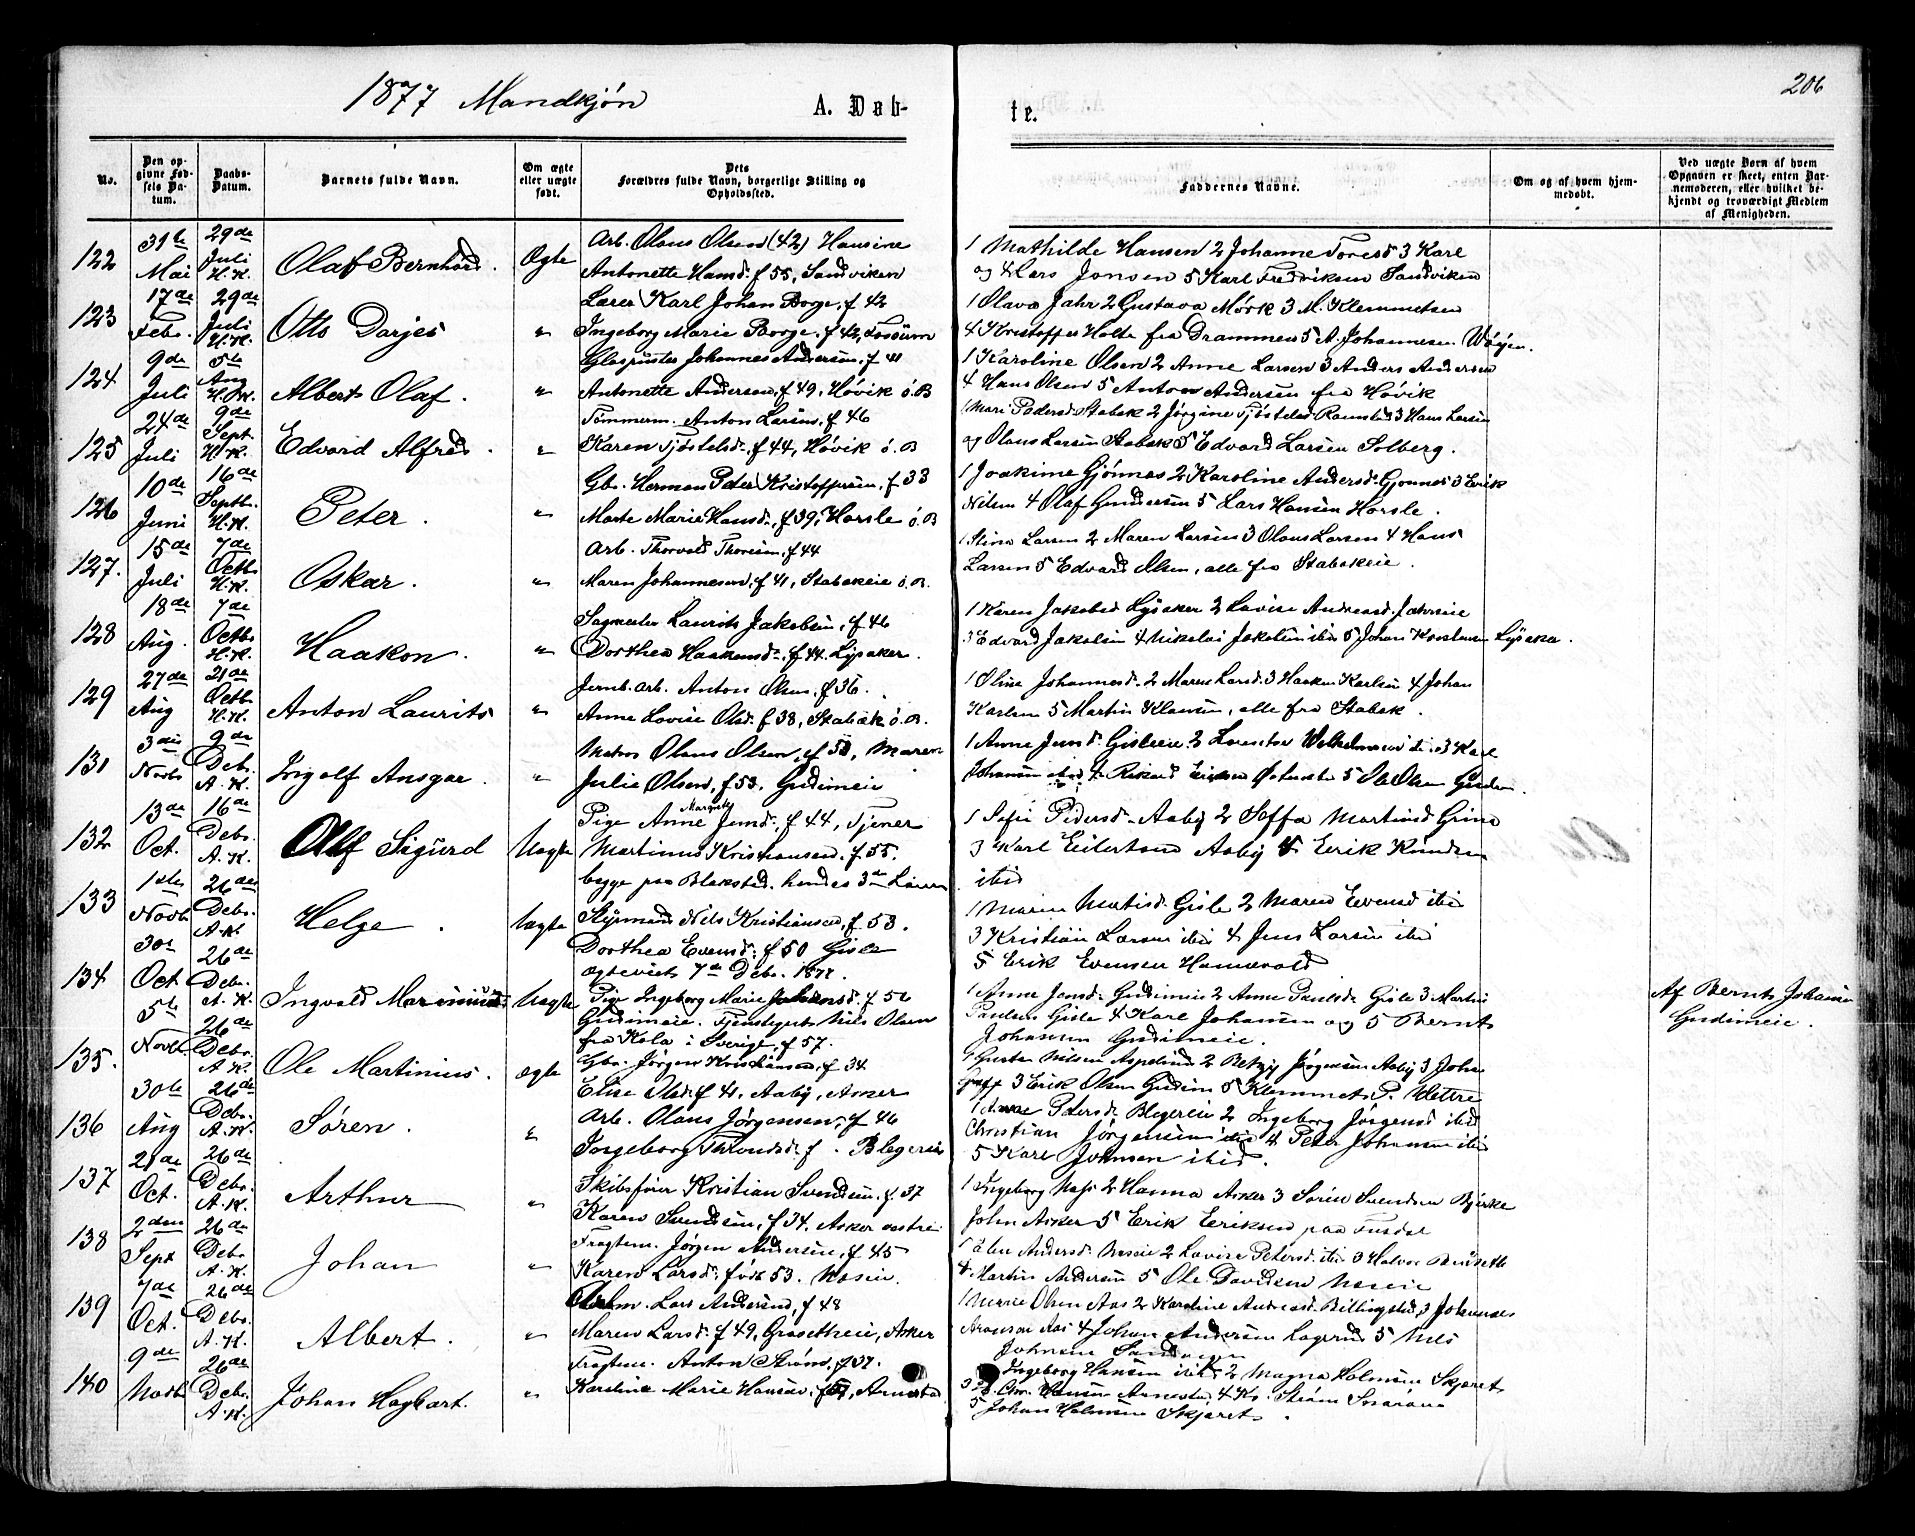 1877 Mandkjøn
A. Døb-
te.
206
No.
Den op-
givne Fød-
sels Da-
tum.
Daabs-
Datum.
Barnets fulde Navn.
Om ægte
eller uægte
født.
Dets
Forældres fulde Navn, borgerlige Stilling og
Opholdssted.
Faddernes Navne.
Om og af hvem hjem-
medøbt.
Ved uægte Børn af hvem
Opgaven er skeet, enten Bar-
nemoderen, eller hvilket be-
kjendt og troværdigt Medlem
af Menigheden.
122 31te Mai 29de Juli H.K. Olaf Bernhard. Ægte
Arb. Olaus Olsen (42) Hansine
Antonette Hansd. f 55, Sandviken
1 Mathilde Hansen 2 Johanne Tores 3 Karl
og 4 Lars Jensen 5 Karl Fredriksen Sandviken
123 17de Febr. 29de Juli H.K. Otto Darjes "
Lærer Karl Johan Borge, f 42
Ingeborg Marie Borge, f 42, Fossum
1 Olava Jahr 2 Gustava Mørk 3 M. Klemmetsen
4 Kristoffer Holte fra Drammen 5 A. Johannesen Wøyen.
124 9de Juli 5te Aug H.K. Albert Olaf. "
Glaspuster Johannes Andersen, f 41
Antonette Andersen, f 49, Høvik ø.B
1 Karoline Olsen 2 Anne Larsen 3 Anders Andersen
4 Hans Olsen 5 Anton Andersen fra Høvik
125 24de Juli 9de Sept H.K. Edvard Alfred. "
Tømmerm. Anton Larsen, f 46
Karen Tjøstelsd. f 44, Høvik ø.B
1 Mari Pedersd. Stabæk 2 Jørgine Tjøstelsd. Ramstad 3 Hans Larsen
og Olaus Larsen Stabæk 5 Edvard Larsen Solberg.
126 10de Juni 16de Septbr. H.K. Peter. "
Gbr. Herman Peter Kristoffersen, f 33
Marte Marie Hansd. f 39, Horsle ø.B
1 Joakime Gjønnes 2 Karoline Andersd. Gjønnes 3 Erik
Nilsen 4 Olaf Gundersen 5 Lars Hansen Horsle.
127. 15de Juli 7de Octb. H.K. Oskar. "
Arb. Thorvald Thoresen, f 44
Maren Johannesen, f 41, Stabækeie ø.B.
1 Stina Larsen 2 Maren Larsen 3 Olaus Larsen 4 Hans
Larsen 5 Edvard Olsen, alle fra Stabækeie.
128 18de Aug. 7de Octb. H.K. Haakon. "
Sagmester Laurits Jakobsen, f 46
Dorthea Haakensd. f 44. Lysaker.
1 Karen Jakobsd Lysaker 2 Lovise Andreasd.
3 Edvard Jakobsen 4 Nikolai Jakobsen ibid 5 Johan Kristensen Lysaker.
129 27de Aug 21de Octb. H.K. Anton Laurits "
Jernb. arb. Anton Olsen, f 36.
Anne Lovise Olsd. f 38, Stabæk ø.B.
1 Oline Johannesd. 2 Maren Larsd. 3 Haaken Karlsen 4 Johan
Karlsen 5 Martin Klausen, alle fra Stabæk.
131 3die Novb. 9de Debr. A.K. Ingolf Ansgar. "
Matros Olaus Olsen, f 50, Maren
Julie Olsen, f 53, Gudimeie
1 Anne Jensd. Gisleeie 2 Loventse Wilhelmsen ibid 3 Karl
Johansen ibid 4 Rikard 5 Ole Olsen
132 13de Oct. 16de Debr. A.K. Alf Sigurd Uægte
Pige Anne Margrete Jensd. f 44, Tjener
Martinus Kristiansen, f 55.
begge paa Blakstad. hendes 3de
1 Sofie Pedersd. Aaby 2 Soffa Martinsd Grine
3 Karl Eilertsen Aaby 4 Erik Knudsen
ibid
133 1ste Novb. 26de Debr. A.K. Helge. Uægte
Styrmand Nils Kristiansen, f 53.
Dorthea Evensd. f 50 Gisle
ægteviet 7de Debr. 1877.
1 Maren Matisd. Gisle 2 Maren Evensd ibid
3 Kristian Larsen ibid 4 Jens Larsen ibid
5 Erik Evensen Hamevold
134 30te Oct 26de Debr. A.K. Ingvald Marinius Uægte
Pige Ingeborg Marie Johansd. f 52
Gudimeie. Tjenstegut Nils Olsen
fra Kola i Sverige, f 57.
1 Anne Jonsd. Gudimeie 2 Anne Paulsd. Gisle 3 Martin
Paulsen Gisle 4 Karl Johansen og 5 Bernt
Johansen Gudimeie.
Af Bernt Johansen
Gudimeie.
135. 5te Novb. 26de Debr. A.K. Ole Martinius. ægte
Gbr. Jørgen Kristiansen, f 34
Elise Olsd. f 41, Aaby, Asker
1 Gustav Nilsen Aspelund 2 Betzy Jørgensen Aaby 3 John
3 Erik Olsen Gudim 5 Klemmet P. Vettre
136 30te Aug 26de Debr. A.K. Søren. "
Arb. Olaus Jørgensen, f 46
Ingeborg Trondsd. f. Blegerie
1 Anne Pedersd. Blegereie 2 Ingeborg Jørgensd ibid
Christian Jørgensen ibid 4 Peter Johansen ibid
5 Karl Johnsen ibid.
137 21de Oct. 26de Debr. A.K. Arthur "
Skibsfører Kristian Svendsen, f 37
Karen Svendsen, f 34. Asker østre
1 Ingeborg Næs 2 Hanna Asker 3 Søren Svendsen Bjerke
John Asker 5 Erik Eriksen paa Fusdal
138 2den Sept 26de Debr. A.K. Johan "
Fragtem. Jørgen Andersen, f 45
Karen Larsd. født 53. Næseie.
1 Elen Andersd. Næseie 2 Lovise Petersd. ibid 3 Halvor
4 Martin Andersen 5 Ole Davidsen Næseie
139 7de Oct. 26de Debr. A.K. Albert. "
Lars Andersen, f 48
Maren Larsd. f 49, Grosetheie, Asker
1 Marie Olsen Aas 2 Karoline Andreasd. Billingstad, 3 Johannes
Aronsen Aas 4 Johan Andersen Lagerud 5 Nils
Johnsen
140 9de Novb. 26de Debr. A.K. Johan Hagbart. "
Fragtem. Anton Strøm, f 37.
Karoline Marie Hansen, f
Ingeborg Hansen ibid 2 Magna Holmsen Skjæret
3 Chr. Hansen Arnestad 4 Kr. Strøm
5 Johan Holmsen Skjæret.